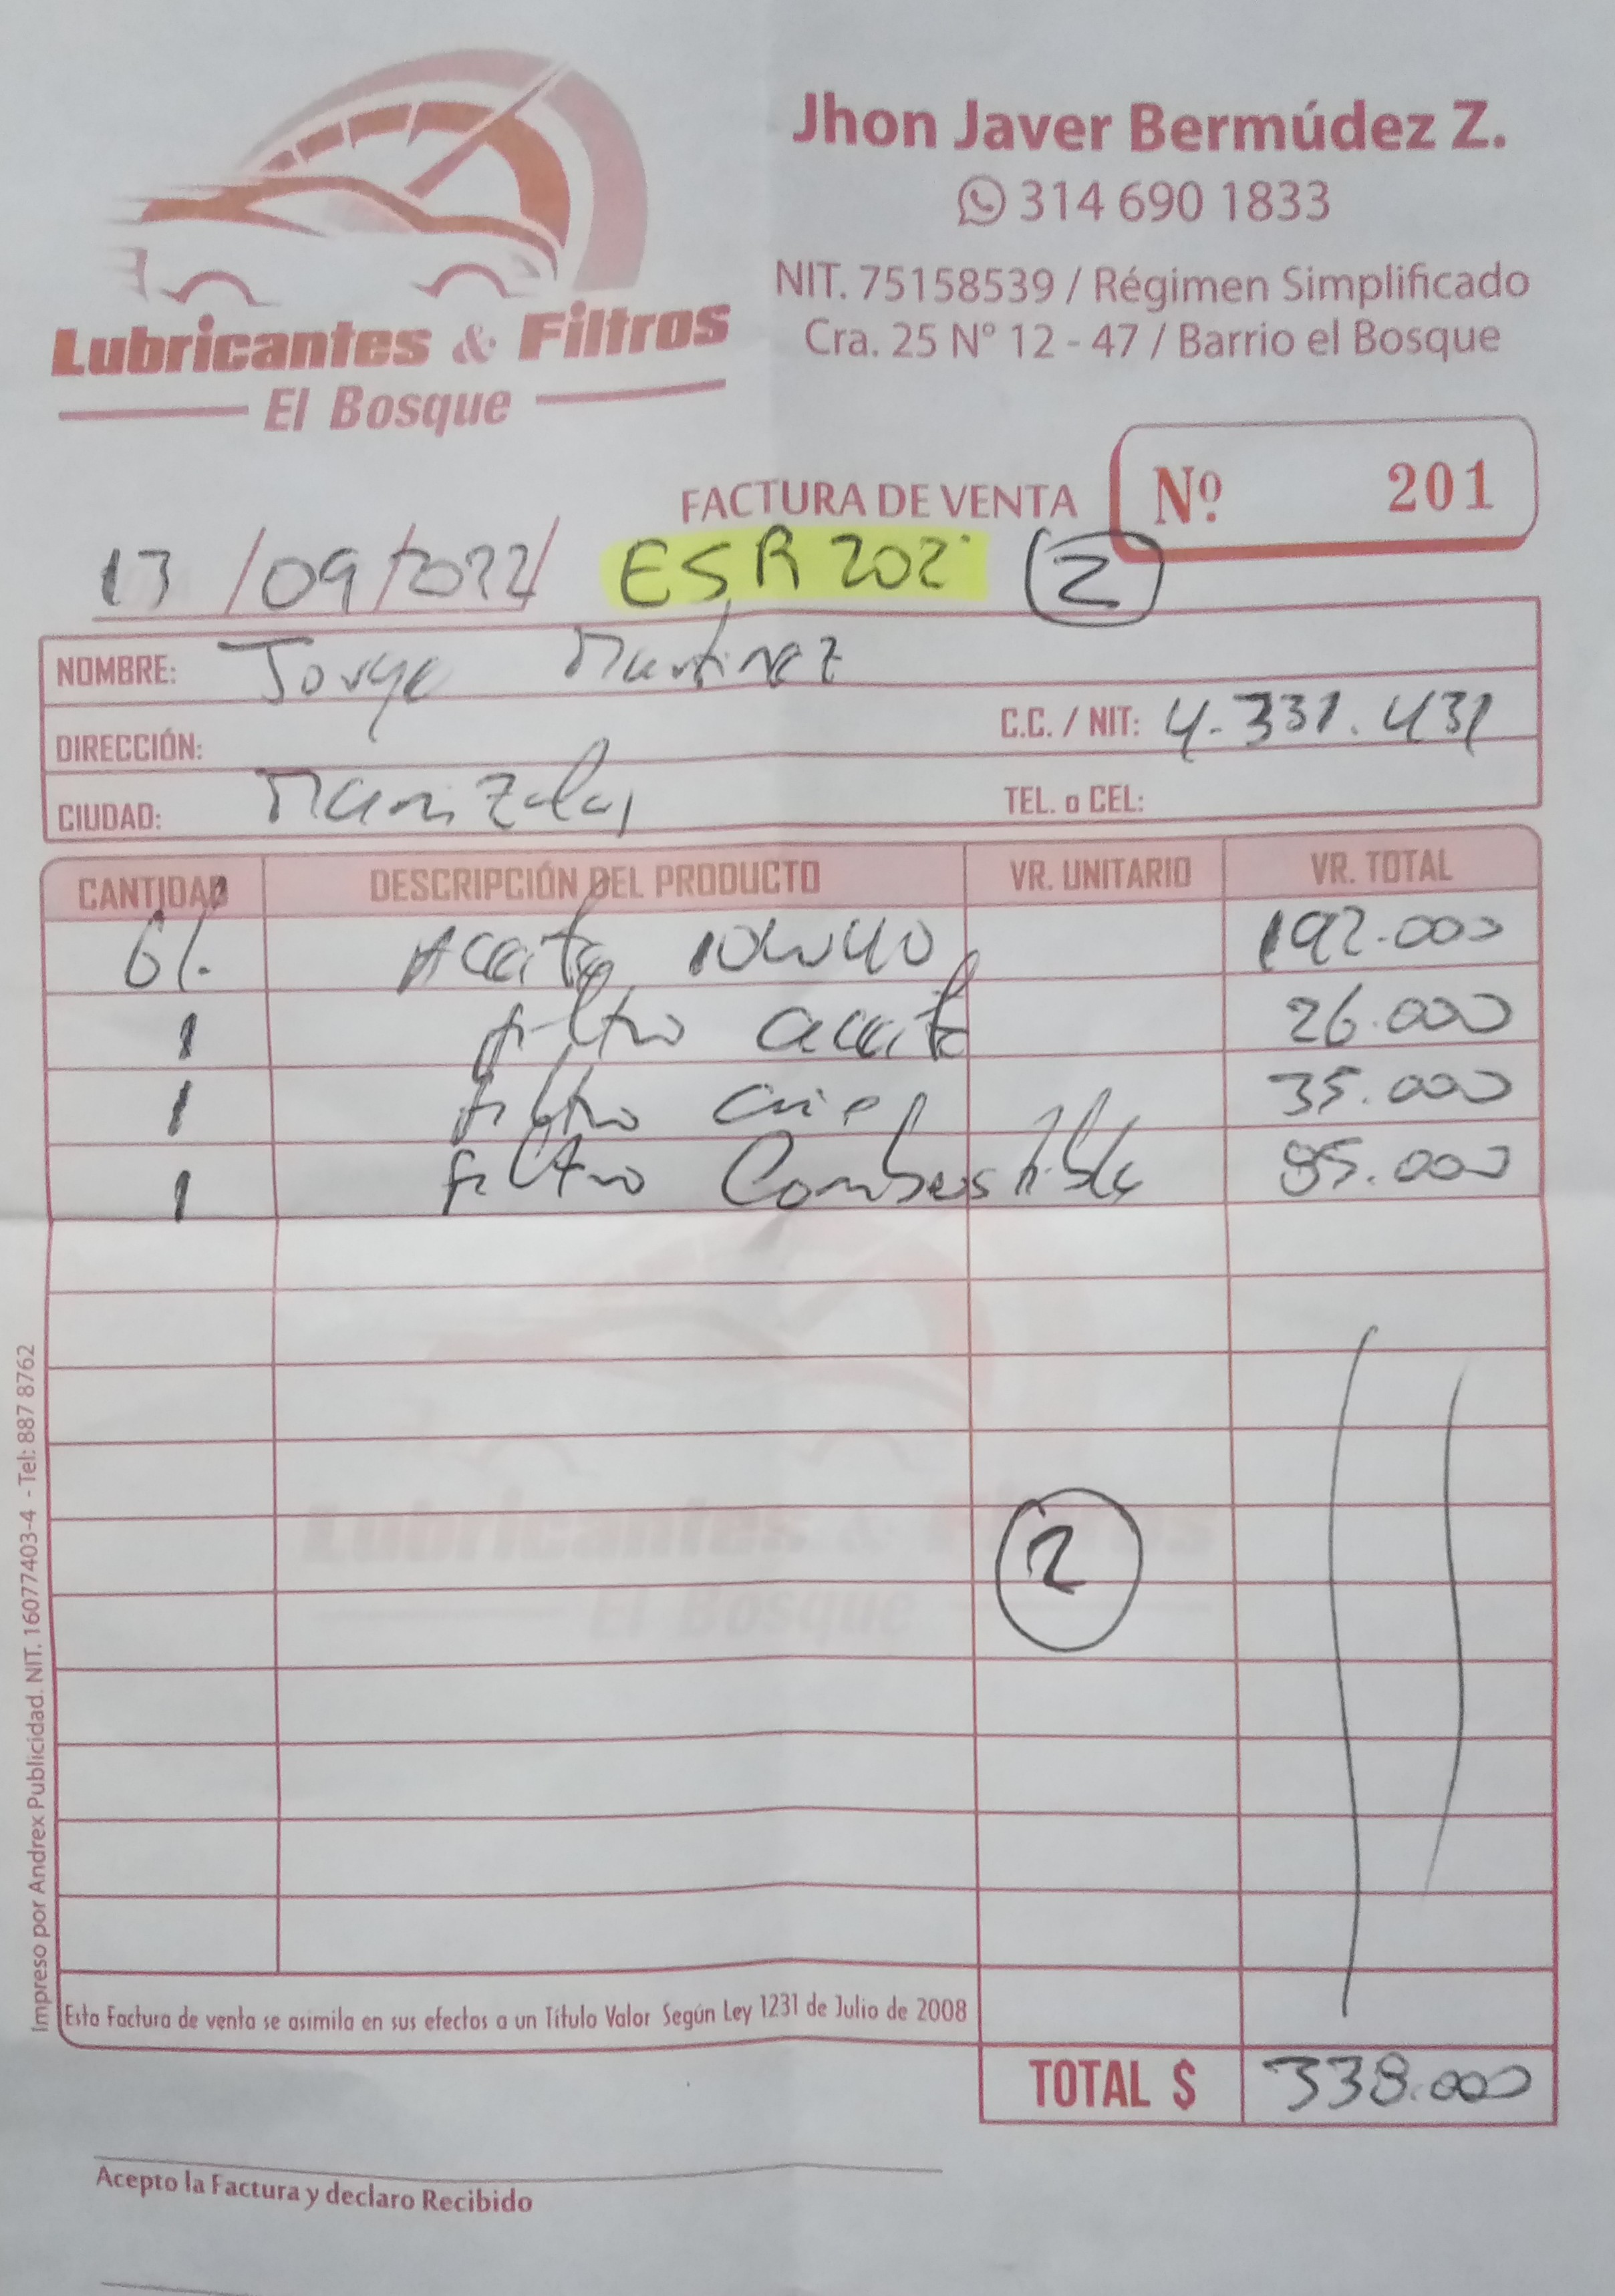 Jhon Javer Bermúdez Z.
314 690 1833
NIT. 75158539 / Régimen Simplificado
Cra. 25 Nº 12 - 47 / Barrio el Bosque
Lubricantes & Filtros
El Bosque
FACTURA DE VENTA Nº 201
13/09/2022/ ESR 202 2
NOMBRE: Jorge Martinez
DIRECCIÓN: C.C. / NIT: 4.331.431
CIUDAD: Manizales TEL. o CEL:
CANTIDAD DESCRIPCIÓN DEL PRODUCTO VR. UNITARIO VR. TOTAL
6/. Aceite 10W40 192.000
1 filtro aceite 26.000
1 filtro aire 35.000
1 filtro Combustible 85.000
Lubricantes & Filtros
2
El Bosque
Esta Factura de venta se asimila en sus efectos a un Título Valor Según Ley 1231 de Julio de 2008
TOTAL $ 338.000
Acepto la Factura y declaro Recibido
Impreso por Andrex Publicidad. NIT. 16077403-4 - Tel: 887 8762